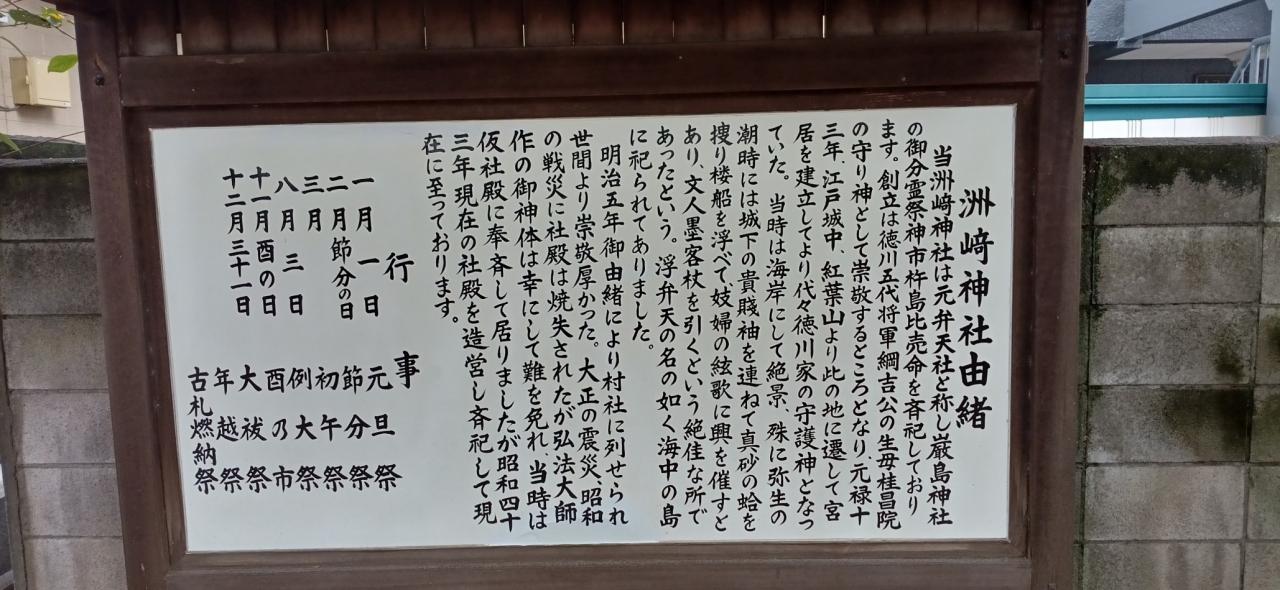 洲﨑神社由緒
当洲﨑神社は元弁天社と称し巌島神社
の御分霊祭神市杵島比売命を斉祀しており
ます。創立は徳川五代将軍綱吉公の生母桂昌院
の守り神として崇敬するところとなり、元禄十
三年、江戸城中、紅葉山より此の地に遷して宮
居を建立してより代々徳川家の守護神となっ
ていた。当時は海岸にして絶景、殊に弥生の
潮時には城下の貴賤袖を連ねて真砂の蛤を
捜り楼船を浮べて妓婦の絃歌に興を催すと
あり、文人墨客杖を引くという絶佳な所で
あったという。浮弁天の名の如く海中の島
に祀られてありました。
明治五年御由緒により村社に列せられ
世間より崇敬厚かった。大正の震災、昭和
の戦災に社殿は焼失されたが弘法大師
作の御神体は幸にして難を免れ、当時は
仮社殿に奉斉して居りましたが昭和四十
三年現在の社殿を造営し斉祀して現
在に至っております。
行事
一月一日 元旦祭
二月節分の日 節分祭
三月 初午祭
八月三日 例大祭
十一月酉の日 酉乃市
十二月三十一日 大祓祭
年越祭
古札燃納祭